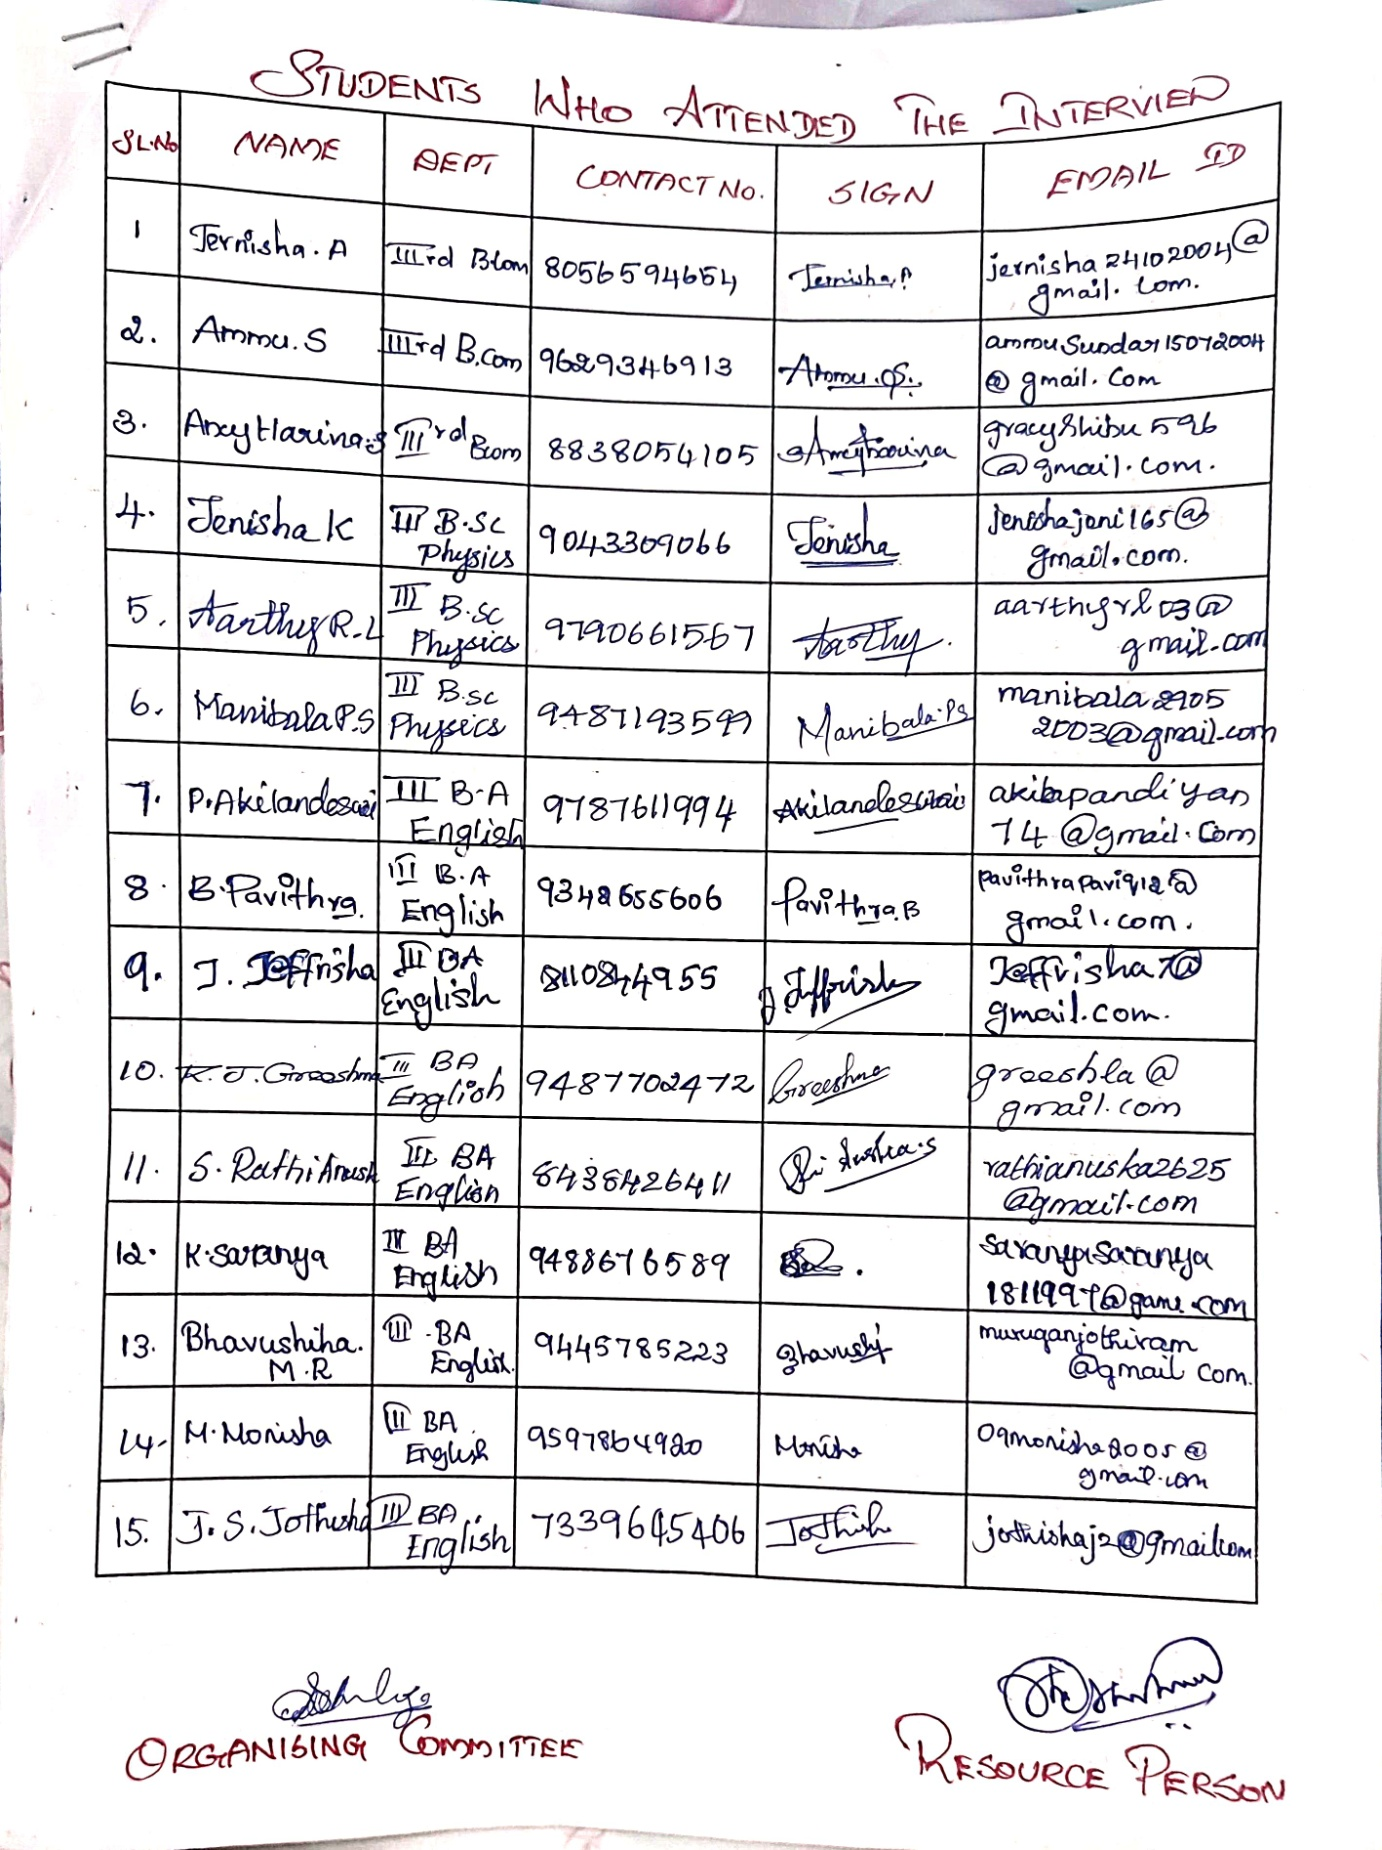 STUDENTS WHO ATTENDED THE INTERVIEW
SL.No NAME DEPT CONTACT No. SIGN EMAIL ID
1 Jernisha. A IIIrd Bcom 8056594654 Jernisha.A jernisha24102004@
gmail. com.
2. Ammu. S IIIrd B.com 9629346913 Ammu. S. ammuSundar15072004
@ gmail. Com
3. AncyHarina.S IIIrd Bcom 8838054105 gracyshibu596
@gmail.com.
4. Jenisha K III B.Sc 9043309066 Jenisha jenishajeni165@
Physics gmail.com.
5. Aarthy R.L III B.Sc 9790661567 Aarthy. aarthyrl03@
Physics gmail.com
6. Manibala P.S III B.sc 9487193599 Manibala.P.S manibala2905
Physics 2003@gmail.com
7. P.Akilandeswari III B.A 9787611994 Akilandeswari akilapandiyan
English 74@gmail.Com
8. B.Pavithra. III B.A 9342655606 Pavithra.B pavithrapavi912@
English gmail.com.
9. J. Jeffrisha III BA 8110844955 Jeffrisha7@
English gmail.com.
10. K.J.Greeshma III BA 9487702472 Greeshma greeshla@
English gmail.com
11. S. Rathi Anush III BA 8438426411 rathianuska2625
English @gmail.com
12. K.Saranya III BA 9488676589 Saranyasaranya
English 1811997@game.com
13. Bhavushiha. III BA 9445785223 Bhavushi muruganjothiram
M.R English. @gmail com.
14. M.Monisha III BA 9597864920 Monisha 09monisha2005@
English gmail.com
15. J.S.Jothisha III BA 7339645406 Jothish jothishaj2@gmailcom
English
ORGANISING COMMITTEE RESOURCE PERSON